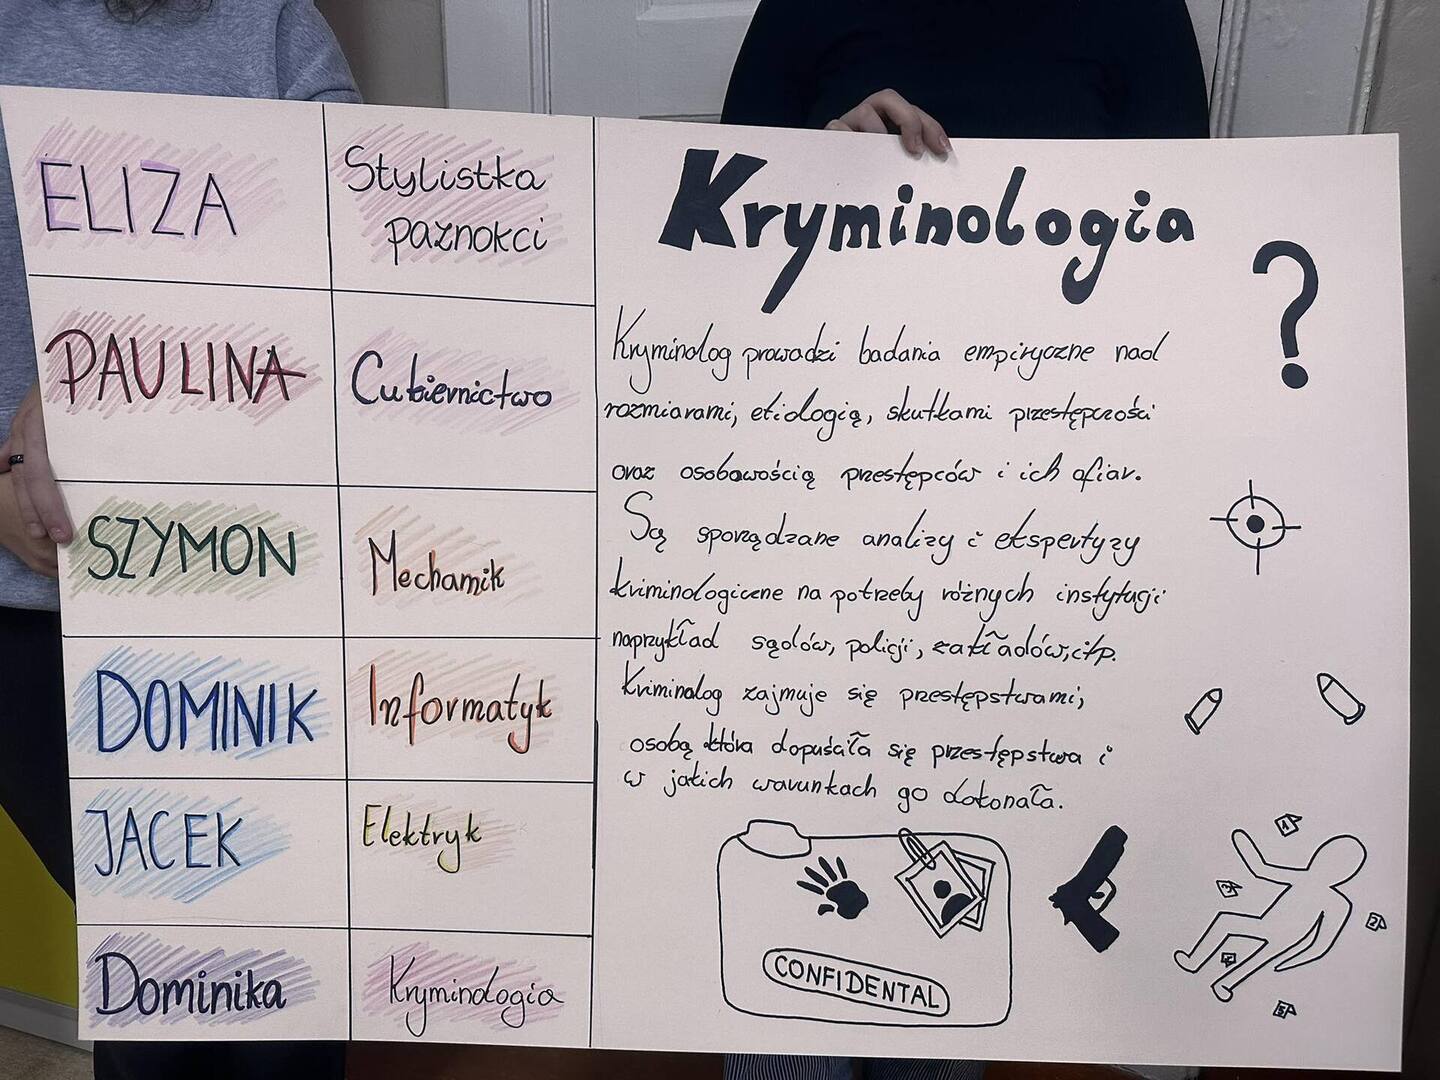 ELIZA
Stylistka
paznokci
PAULINA
Cukiernictwo
SZYMON
Mechanik
DOMINIK
Informatyk
JACEK
Elektryk
Dominika
Kryminologia
Kryminologia
?
Kryminolog prowadzi badania empiryczne nad
rozmiarami, etiologią, skutkami przestępczości
oraz osobowością przestępców i ich ofiar.
Są sporządzane analizy i ekspertyzy
kriminologiczne na potrzeby różnych instytucji
naprzykład sądów, policji, zakładów, itp.
Kriminolog zajmuje się przestępstwami,
osobą która dopuściła się przestępstwa i
w jakich warunkach go dokonała.
CONFIDENTAL
1
2
5